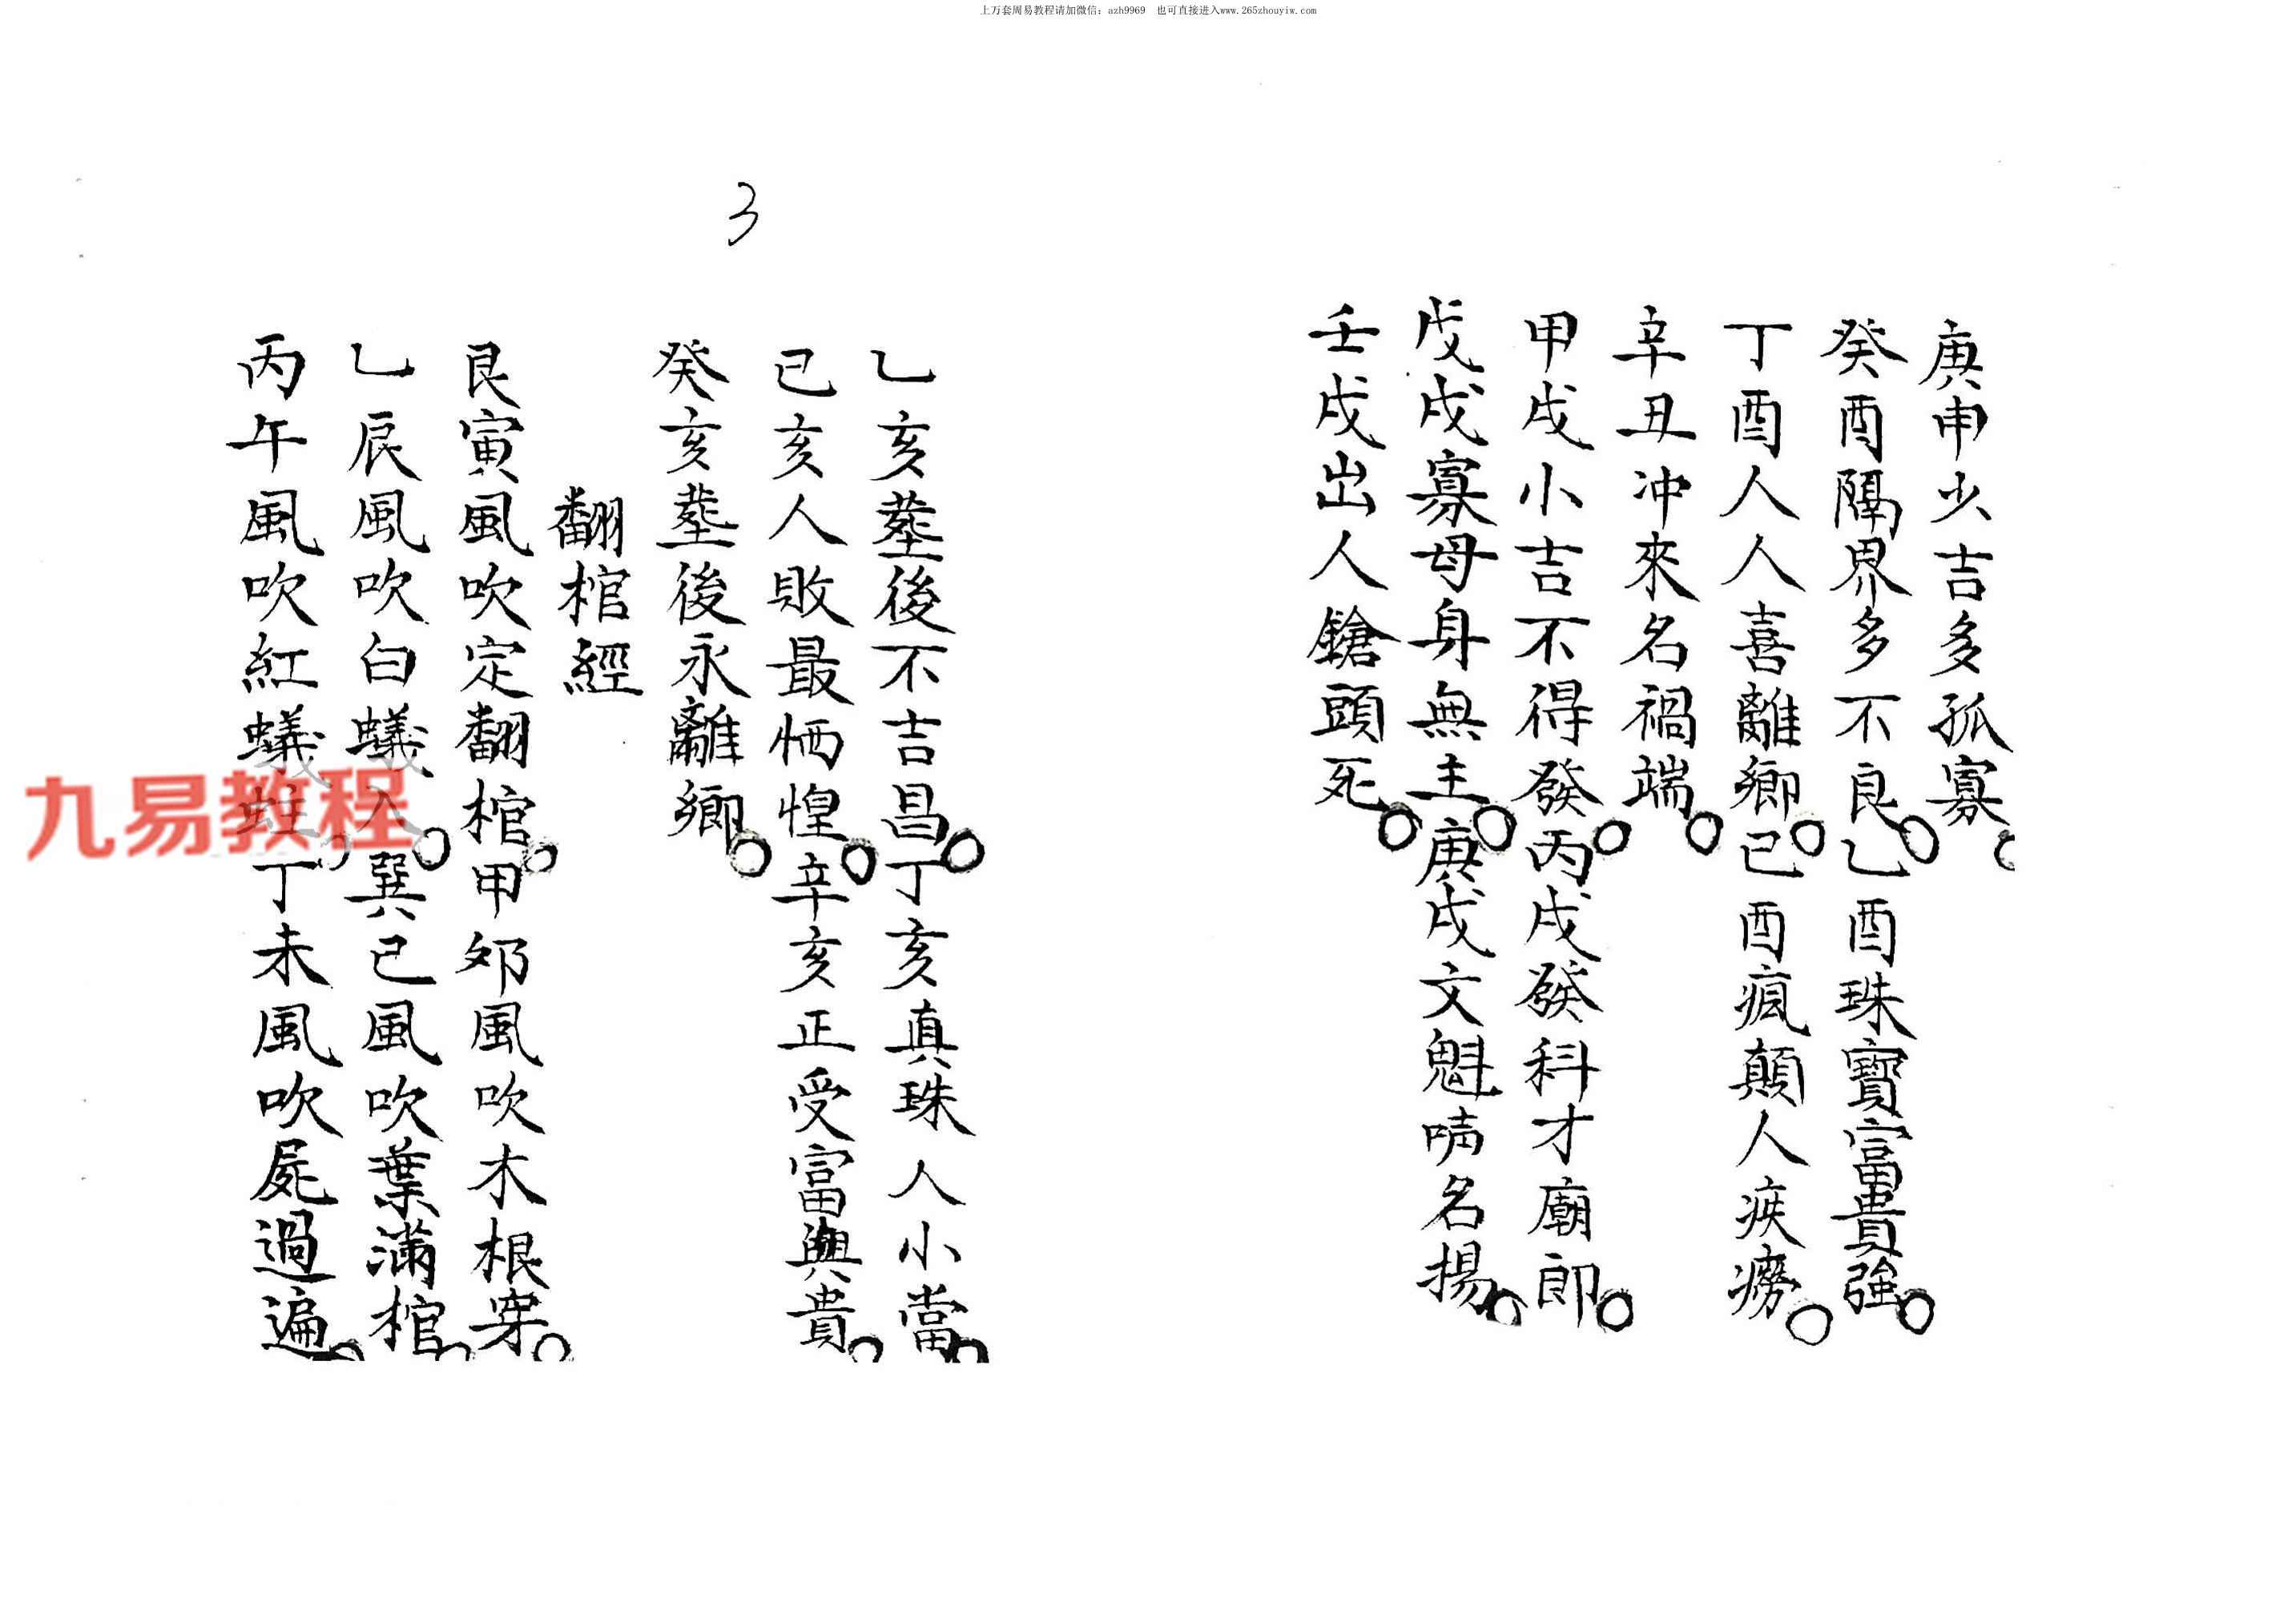 上万套周易教程请加微信：azh9969 也可直接进入www.265zhouyiw.com
庚申少吉多孤寡○
癸酉隔界多不良○乙酉珠寶富貴強○
丁酉人人喜離鄉○已酉瘋顛人疾癆○
辛丑冲來名禍端○
甲戌小吉不得發○丙戌發科才廟郎○
戊戌寡母身無主○庚戌文魁名揚○
壬戌出人鎗頭死○
3
乙亥塟後不吉昌○丁亥真珠人小當○
已亥人敗最恓惶○辛亥正受富與貴○
癸亥塟後永離鄉○
翻棺經
艮寅風吹定翻棺○甲夘風吹木根穿○
乙辰風吹白蟻入○巽已風吹葉滿棺○
丙午風吹紅蟻蛀○丁未風吹屍過遍○
九易教程